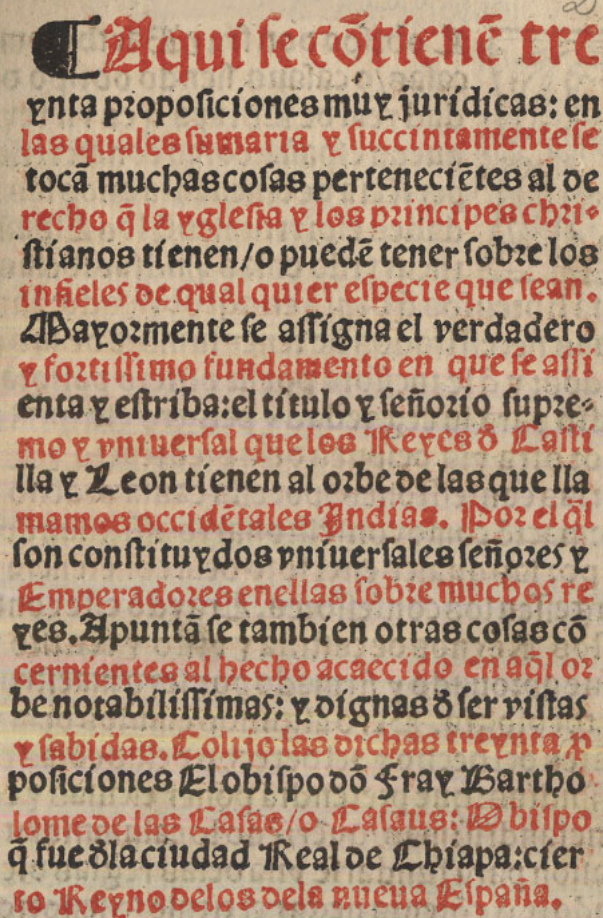 ¶ Aqui se cõtienẽ tre
ynta proposiciones muy juridicas: en
las quales sumaria y succintamente se
tocã muchas cosas perteneciẽtes al de
recho q̃ la yglesia y los principes chri-
stianos tienen/o puedẽ tener sobre los
infieles de qual quier especie que sean.
Mayormente se assigna el verdadero
y fortissimo fundamento en que se assi
enta y estriba:el titulo y señorio supre-
mo y vniuersal que los Reyes đ Casti
lla y Leon tienen al orbe de las que lla
mamos occidẽtales Indias. Por el q̃l
son constituydos vniuersales señores y
Emperadores enellas sobre muchos re
yes.Apuntã se tambien otras cosas cõ
cernientes al hecho acaecido en aq̃l or
be notabilissimas: y dignas đ ser vistas
y sabidas.Colijo las dichas treynta ꝓ
posiciones El obispo dõ Fray Bartho
lome de las Casas/o Casaus: Obispo
q̃ fue đla ciudad Real de Chiapa:cier
to Reyno delos dela nueua España.